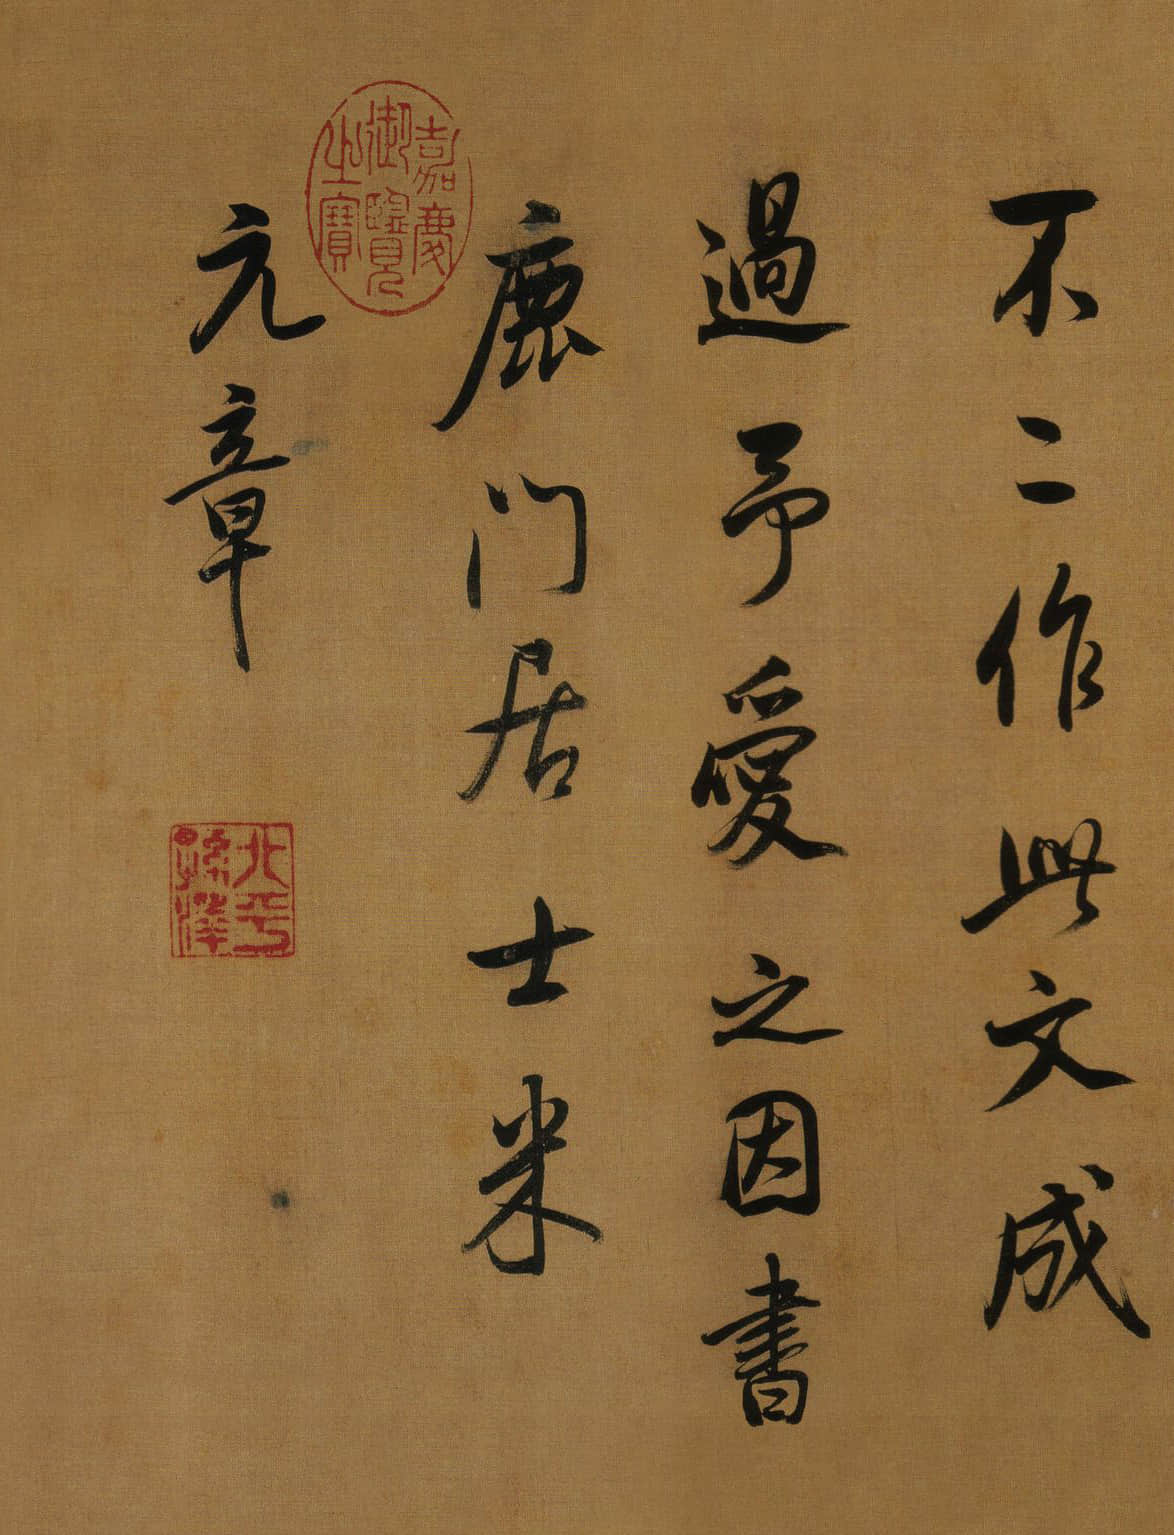 不二作此文成
過予愛之因書
鹿门居士米
元章
嘉慶
御覽
之寶
北平
孫澤